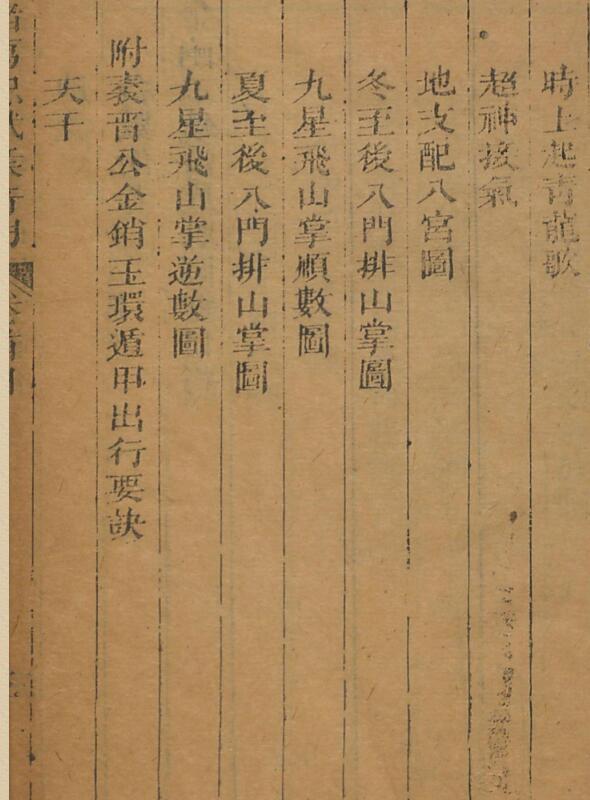 時上起青龍歌
超神接氣
地支配八宮圖
冬至後八門排山掌圖
九星飛山掌順數圖
夏至後八門排山掌圖
九星飛山掌逆數圖
附袠晋公金銷玉環遁甲出行要訣
天干